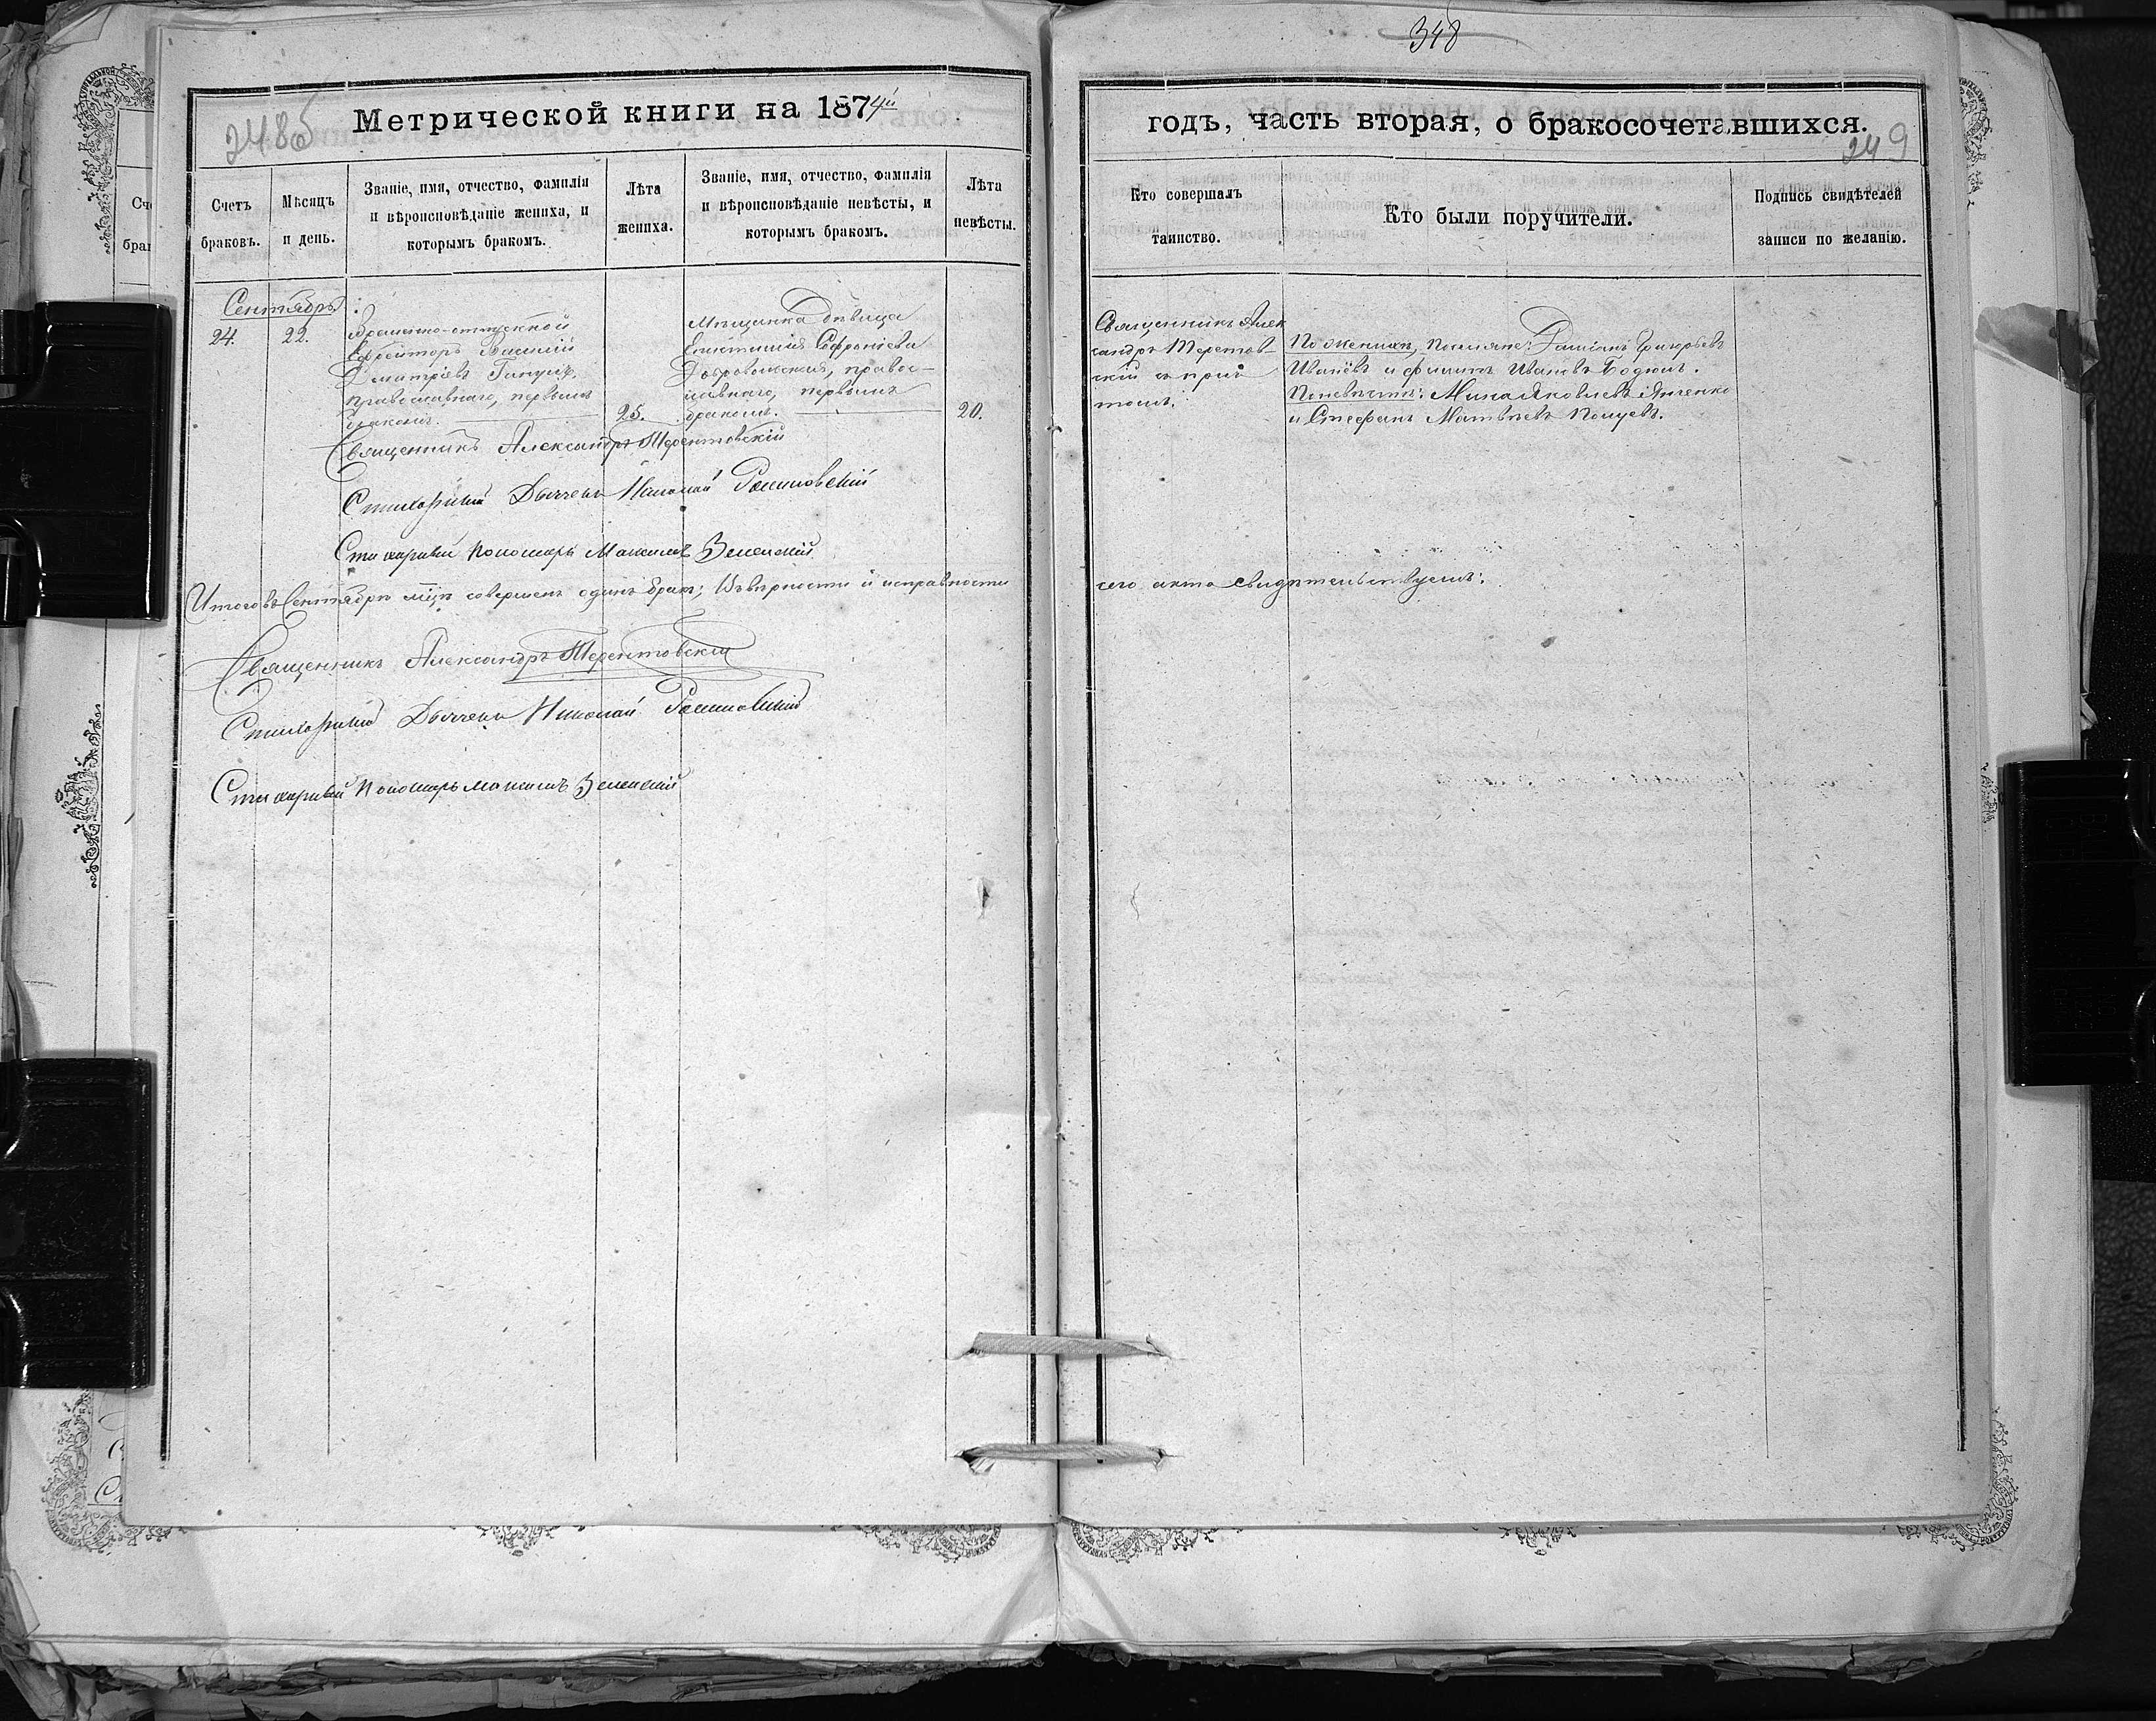 348
248об
Метрической книги на 1874й
годъ, часть вторая, о бракосочетавшихся.
249
Счетъ браковъ.
Мѣсяцъ и день.
Званіе, имя, отчество, фамилія и вѣроисповѣданіе жениха, и которымъ бракомъ.
Лѣта жениха.
Званіе, имя, отчество, фамилія и вѣроисповѣданіе невѣсты, и которымъ бракомъ.
Лѣта невѣсты.
Кто совершалъ таинство.
Кто были поручители.
Подпись свидѣтелей записи по желанію.
Сентябрь:
24.
22.
Временно-отпускной
Ефрейторъ Василій
Дмитріевъ
православнаго, первымъ
бракомъ.
25.
Мѣщанка дѣвица
Софроніева
Добровольская, правос-
лавнаго, первымъ
бракомъ.
20.
Священникъ Алек
сандръ
скій съ прич
томъ.
По женихѣ, поселяне: Григорьевъ
и Филиппъ Ивановъ Бодюлъ.
По невѣстѣ: Мина Яковлевъ
и Стефанъ Матвѣевъ
Священникъ Александръ Терентовскій
Стихарный Дьячекъ Николай
Стихарный Пономарь Максимъ Зеленскій
Итого въ Сентябрѣ мцѣ совершенъ одинъ бракъ; Въ вѣрности и исправности
сего акта свидѣтельствуемъ:
Священникъ Александръ Терентовскій
Стихарный Дьячекъ Николай
Стихарный Пономарь Максимъ Зеленскій